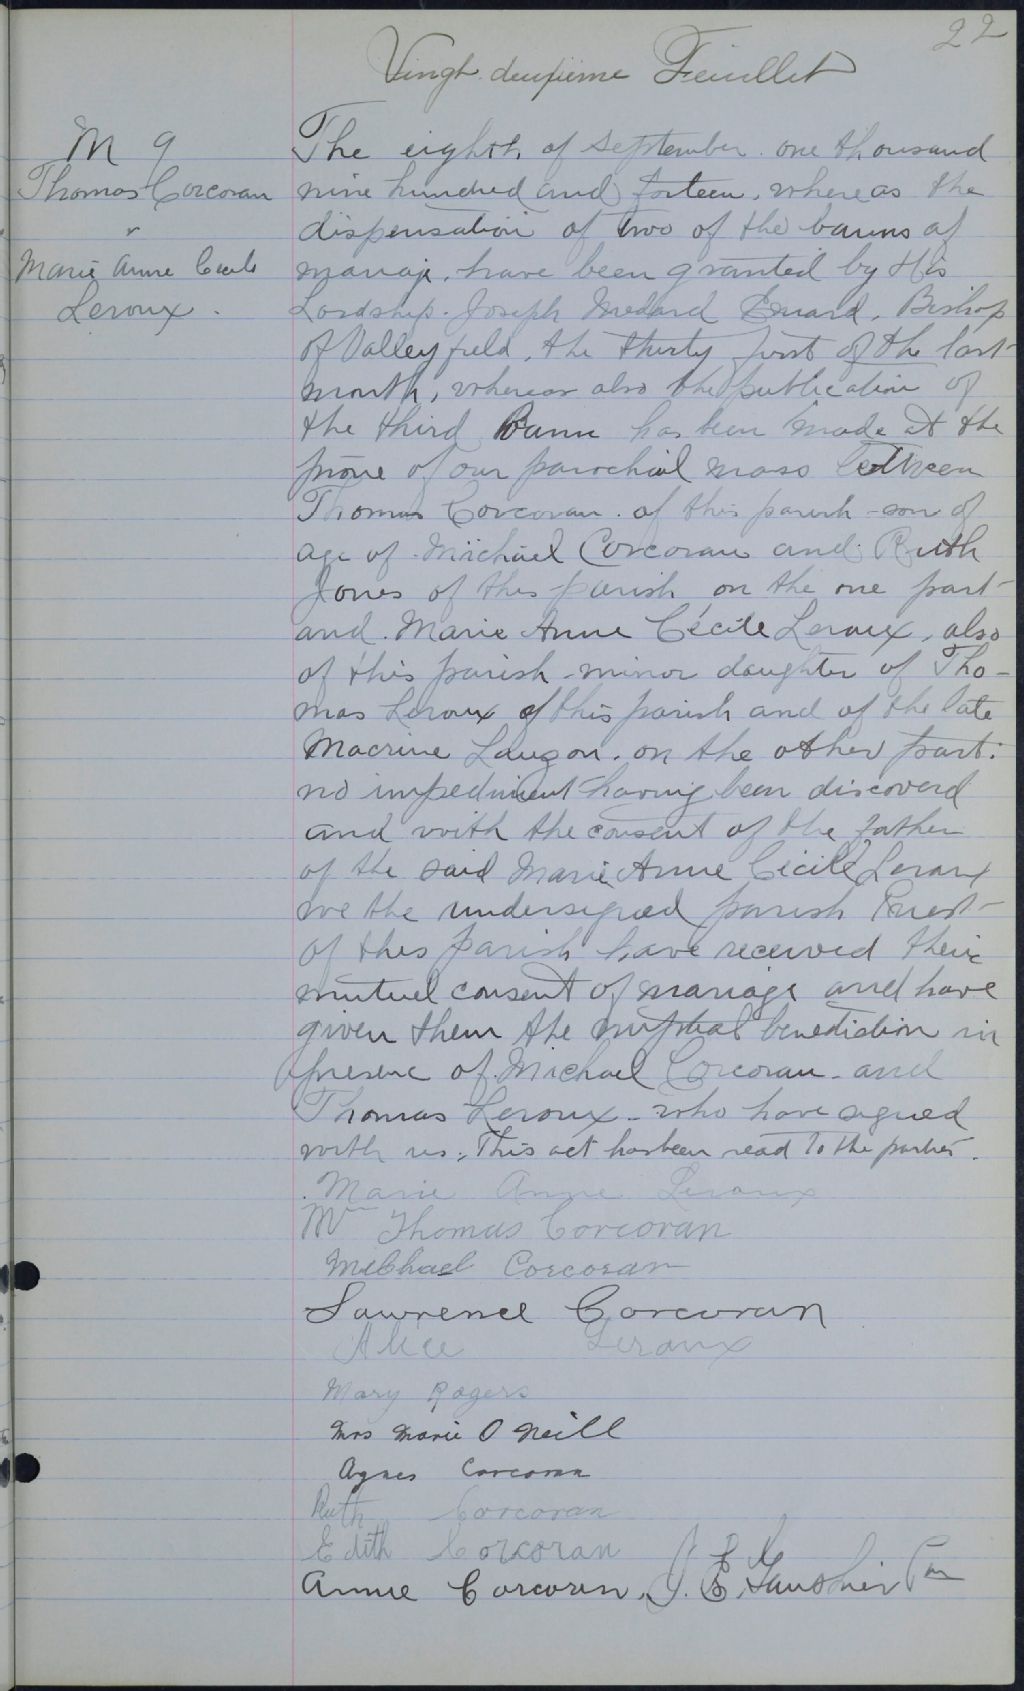 22
Vingt deuxième Feuillet
M 9
Thomas Corcoran
&
Marie Anne Cecile
Leroux.
The eighth of September. one thousand
nine hundred and forteen, whereas the
dispensation of two of the banns of
mariaje, have been granted by His
Lordship. Joseph Medard Emard, Bishop
of Valleyfield, the thirty first of the last
month, whereas also the publication of
the third Bann has been made at the
prone of our parochial mass between
Thomas Corcoran. of this parish - son of
age of Michael Corcoran and Ruth
Jones of this parish on the one part
and. Marie Anne Cécile Leroux, also
of this parish - minor daughter of Tho-
mas Leroux of this parish and of the late
Macrine Lauzon. on the other part:
no impediment having been discoverd
and with the consent of the father
of the said Marie Anne Cécile Leroux
we the undersigned parish Priest
of this parish have received their
mutuel consent of mariage and have
given them the nuptial benediction in
presence of Michael Corcoran - and
Thomas Leroux - who have signed
with us. This act has been read to the parties.
Marie Anne Leroux
Thomas Corcoran
Michael Corcoran
Lawrence Corcoran
Alice Leroux
Mary Rogers
Mrs Marie O Neill
Agnes Corcoran
Ruth Corcoran
Edith Corcoran
Annie Corcoran. J. E. Gauthier